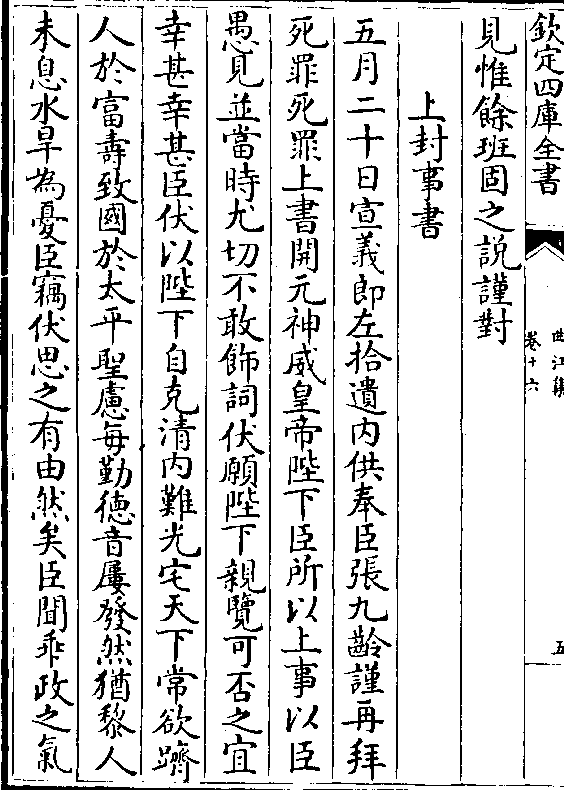 欽定四庫全書
曲江集
卷十六
五
見惟餘班固之說謹對
上封事書
五月二十日宣義郎左拾遺內供奉臣張九齡謹再拜
死罪死罪上書開元神威皇帝陛下臣所以上事以臣
愚見並當時尤切不敢飾詞伏願陛下親覽可否之宜
幸甚幸甚臣伏以陛下自克清內難光宅天下常欲躋
人於富壽致國於太平聖慮每勤德音屢發然猶黎人
未息水旱為憂臣竊伏思之有由然矣臣聞乖政之氣